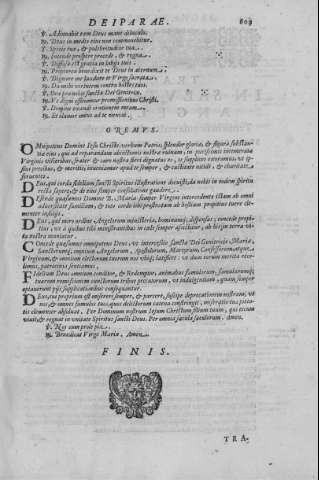 DEIPARAE. 809
℣. Adiuuabit eam Deus mane diluculo.
℟. Deus in medio eius non commouebitur.
℣. Specie tua, & pulchritudine tua.
℟. Intende prospere procede, & regna.
℣. Diffusa est gratia in labijs tuis.
℟. Propterea benedixit te Deus in aeternum.
℣. Dignare me laudare te Virgo sacrata.
℟. Da mihi virtutem contra hostes tuos.
℣. Ora pro nobis sancta Dei Genitrix.
℟. Vt digni efficiamur promissionibus Christi.
℣. Domine exaudi orationem meam.
℟. Et clamor meus ad te veniat.
OREMVS.
OMnipotens Domine Iesu Christe verbum Patris, splendor gloriae, & figura substan-
tiae eius, qui ad reparandam
Virginis visceribus, frater & caro nostra fieri dignatus es, te supplices exoramus, vt ip-
sius precibus, & meritis, inueniamur apud te semper, &
DEus, qui corda fidelium sancti Spiritus illustratione docuisti, da nobis in eodem spiritu
recta sapere, & de eius semper consolatione gaudere.
DEfende quaesumus Domine B. Maria semper Virgine intercedente istam ab omni
aduersitate familiam, & toto corde tibi prostratam ab hostium propitius tuere cle-
menter insidijs.
DEus, qui miro ordine Angelorum ministeria, hominumque dispensas; concede propi-
tius, vt a quibus tibi ministrantibus in caelo semper assistitur, ab his in terra vi-
ta nostra muniatur.
COncede quaesumus omnipotens Deus, vt intercessio sanctae Dei Genitricis Mariae,
Sanctorumque omnium Angelorum, Apostolorum, Martyrum, Confessorum, atque
Virginum, & omnium electorum tuorum nos vbique laetificet: vt dum eorum merita reco-
limus, patrocinia sentiamus.
FIdelium Deus omnium conditor, & Redemptor, animabus famulorum, famularumque
tuarum remissionem cunctorum tribue peccatorum, vt indulgentiam, quam semper
optauerunt pijs supplicationibus consequantur.
DEus, cui proprium est misereri semper, & parcere, suscipe deprecationem nostram, vt
nos, & omnes famulos tuos, quos delictorum catena constringit, miseratio tuae pieta-
tis clementer absoluat. Per Dominum nostrum Iesum Christum filium tuum, qui tecum
viuit, & regnat in vnitate Spiritus sancti Deus. Per omnia saecula saeculorum. Amen.
℣. Nos cum prole pia.
℟. Benedicat Virgo Maria. Amen.
FINIS.
TRA-